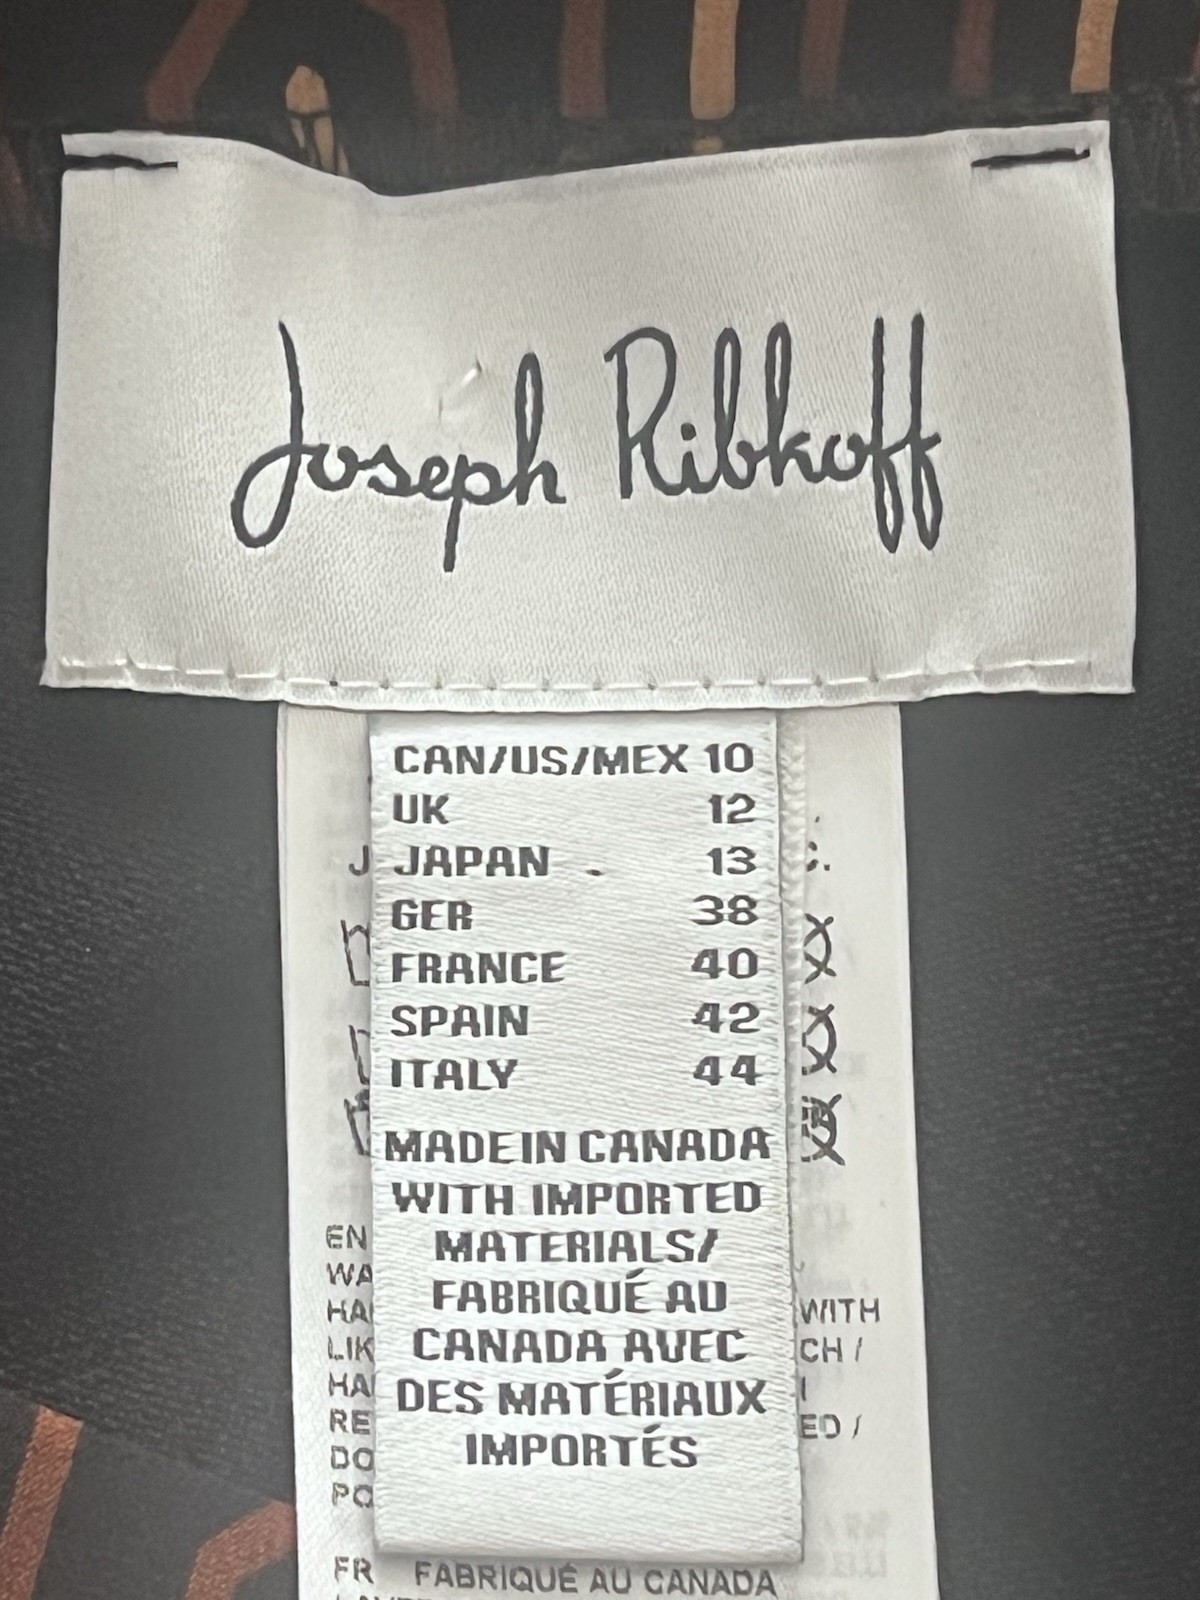 Joseph Ribkoff
CAN/US/MEX 10
UK 12
JAPAN 13
GER 38
FRANCE 40
SPAIN 42
ITALY 44
MADE IN CANADA
WITH IMPORTED
MATERIALS/
FABRIQUÉ AU
CANADA AVEC
DES MATÉRIAUX
IMPORTÉS
EN
WITH
FR FABRIQUÉ AU CANADA